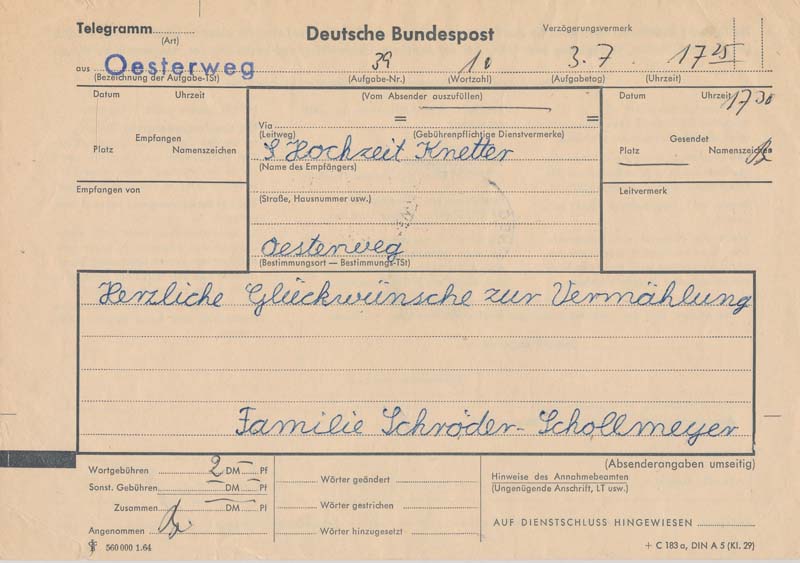 Telegramm
Deutsche Bundespost
Verzögerungsvermerk
(Art)
aus Oesterweg 39 10 3.7. 17 25
(Bezeichnung der Aufgabe-TSt) (Aufgabe-Nr.) (Wortzahl) (Aufgabetag) (Uhrzeit)
Datum Uhrzeit
(Vom Absender auszufüllen)
Datum Uhrzeit 17 30
Via = =
(Leitweg) (Gebührenpflichtige Dienstvermerke)
Empfangen
Platz Namenszeichen
Gesendet
Platz Namenszeichen
Hochzeit Knetter
(Name des Empfängers)
Empfangen von
Leitvermerk
(Straße, Hausnummer usw.)
Oesterweg
(Bestimmungsort — Bestimmungs-TSt)
Herzliche Glückwünsche zur Vermählung
Familie Schröder-Schollmeyer
(Absenderangaben umseitig)
Wortgebühren 2 DM — Pf
Sonst. Gebühren — DM — Pf
Zusammen DM Pf
Angenommen
Wörter geändert
Wörter gestrichen
Wörter hinzugesetzt
Hinweise des Annahmebeamten
(Ungenügende Anschrift, LT usw.)
AUF DIENSTSCHLUSS HINGEWIESEN
560 000 1.64
+ C 183 a, DIN A 5 (Kl. 29)